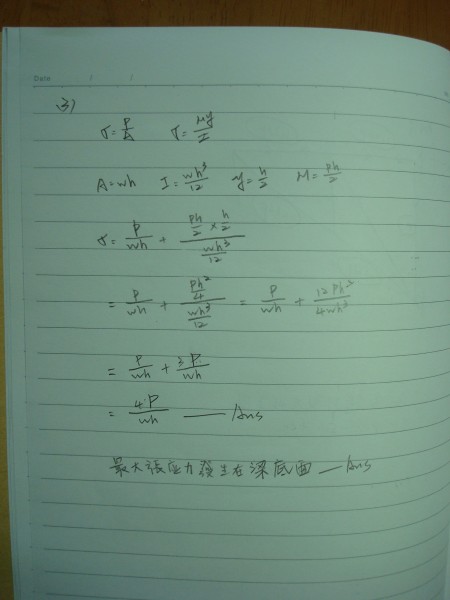 Date / /
(3)
σ=P/A σ=My/I
A=wh I=wh³/12 y=h/2 M=Ph/2
σ=P/wh + (Ph/2 × h/2)/(wh³/12)
= P/wh + (Ph²/4)/(wh³/12) = P/wh + 12Ph²/4wh³
= P/wh + 3P/wh
= 4P/wh —— Ans
最大張应力發生在梁底面 — Ans